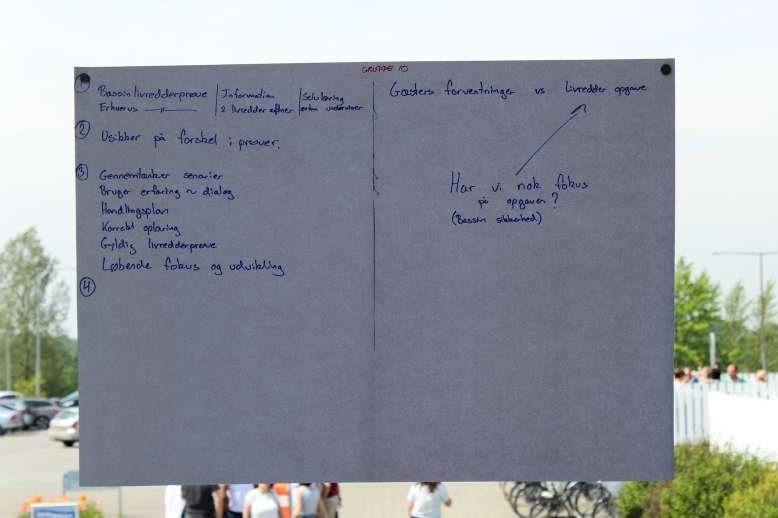 GRUPPE 10
1 Bassinlivredderprøve | Information | Selvkøring
Erhverv | 2 livredder aftner | extra underviser
2 Usikker på forskel i prøver.
3 Gennemtænker senarier
Bruger erfaring ~ dialog
Handlingsplan
Korrekt oplæring
Gyldig livredderprøve
Løbende fokus og udvikling
4
Gæsters forventninger vs Livredder opgave
Har vi nok fokus
på opgaven?
(Bassin sikkerhed)